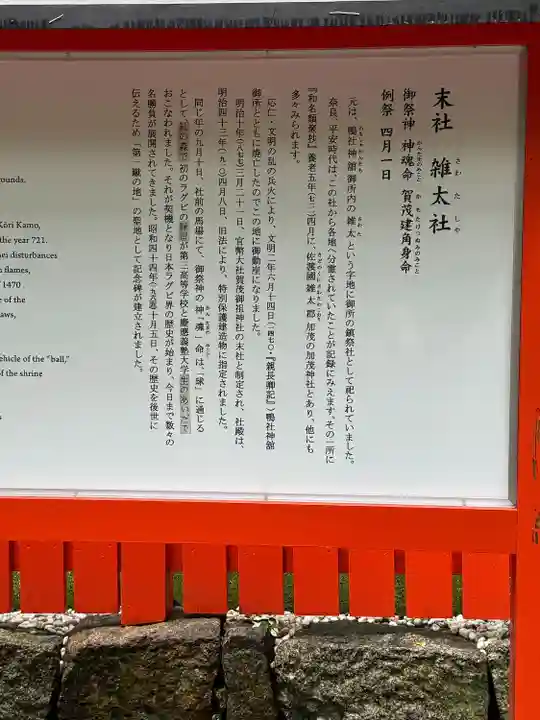 末社 雑太社
さわ た しゃ
御祭神 神魂命 賀茂建角身命
例祭 四月一日
元は、鴨社神舘御所内の雑太という字地に御所の鎮祭社として祀られていました。
奈良、平安時代は、この社から各地へ分霊されていたことが記録にみえます。その一所に
『和名類聚抄』養老五年(七二一)四月に、佐渡國雑太郡加茂の加茂神社とあり、他にも
多々みられます。
応仁・文明の乱の兵火により、文明二年六月十四日(一四七〇・『親長卿記』)鴨社神舘
御所とともに焼亡したのでこの地に御動座になりました。
明治十年(一八七七)三月二十一日、官幣大社賀茂御祖神社の末社と制定され、社殿は、
明治四十三年(一九一〇)四月八日、旧法により、特別保護建造物に指定されました。
同じ年の九月十日、社前の馬場にて、御祭神の神「魂」命は、「球」に通じる
として、糺の森で初のラグビの練習が第三高等学校と慶應義塾大学生のあいだで
おこなわれました。それが契機となり日本ラグビ界の歴史が始まり、今日まで数々の
名勝負が展開されてきました。昭和四十四年(一九六九)十月五日、その歴史を後世に
伝えるため「第一蹴の地」の聖地として記念碑が建立されました。
ounds.
Kōri Kamo,
the year 721.
nei disturbances
n flames,
1470
e of the
aws,
ehicle of the "ball,"
d of the shrine